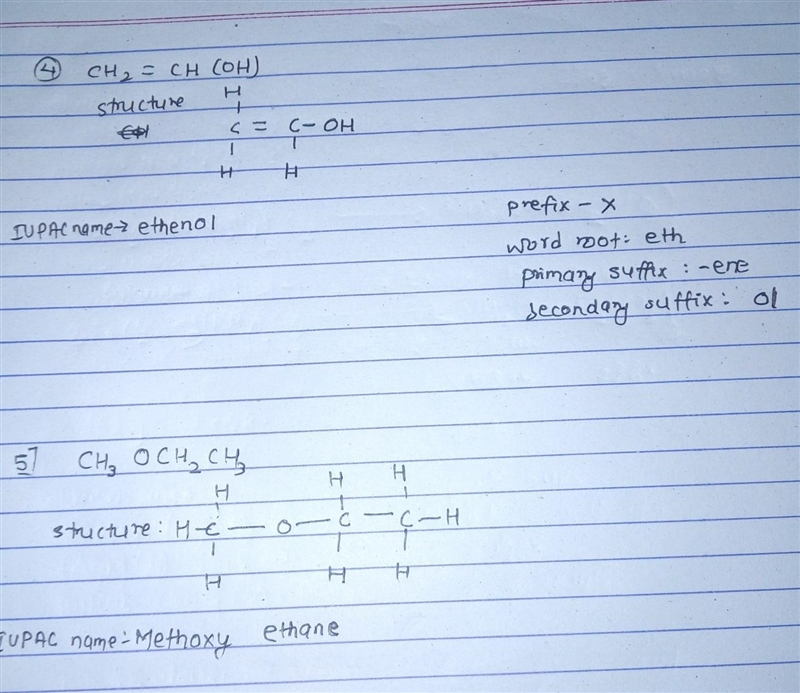 ④ CH₂ = CH (OH)
structure
H
C = C - OH
H H
IUPAC name → ethenol
prefix - X
word root: eth
primary suffix : -ene
secondary suffix : ol
5] CH₃ OCH₂ CH₃
H H H
structure : H - C - O - C - C - H
H H H
IUPAC name :- Methoxy ethane